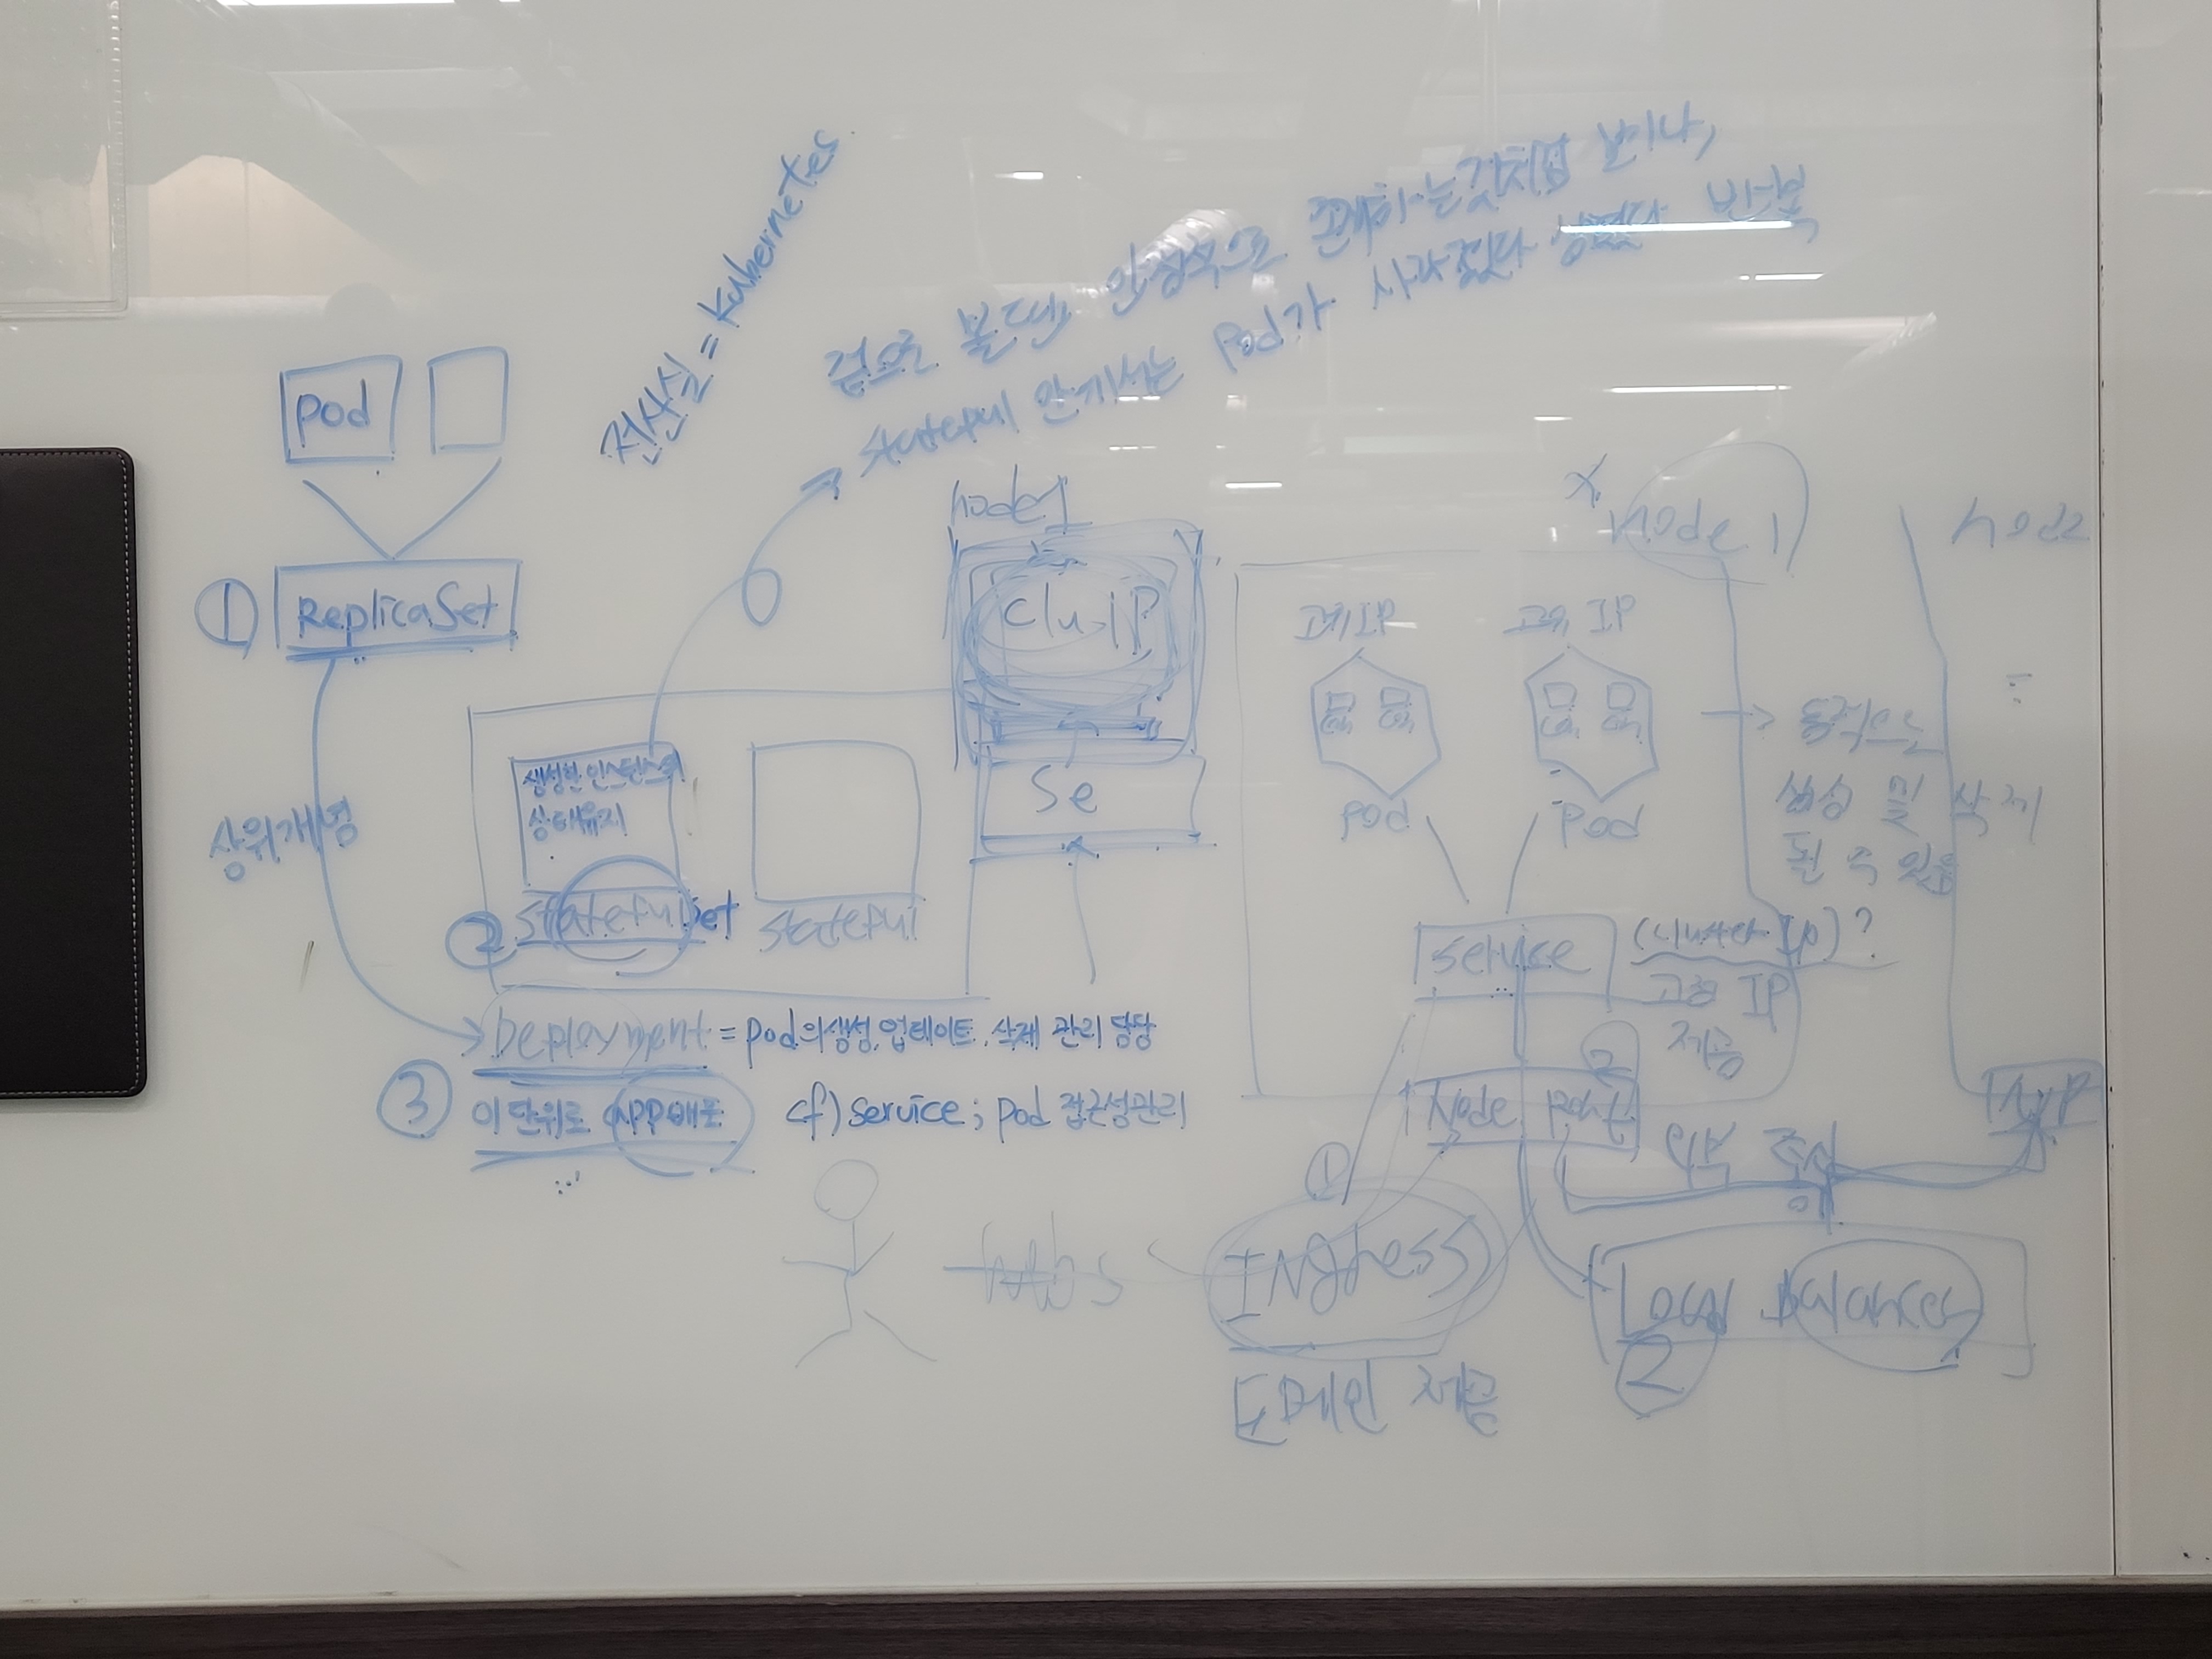 전산실 = Kubernetes
겉으로 볼 땐, 안정적으로 존재하는것처럼 보이나,
stateful 안에서는 Pod가 사라졌다 생겼다 반복
Pod
① ReplicaSet
상위개념
생성한 인스턴스의
상태유지
② StatefulSet
stateful
Deployment = pod의 생성, 업데이트, 삭제 관리 담당
③ 이 단위로 APP배포
cf) Service ; pod 접근성관리
node1
Clu.IP
Se
X
node 1
고유 IP
고유 IP
Pod
Pod
→ 동적으로
생성 및 삭제
될 수 있음
Service
(Cluster IP)?
고정 IP
제공
2
Node Port
외부
①
INgress
도메인 제공
Local Balancer
2